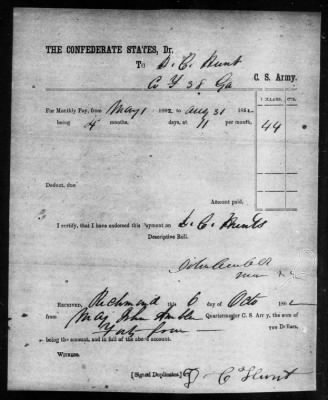 THE CONFEDERATE STATES, Dr.
To D. C. Hunt
Co 38 Ga C. S. Army.
DOLLARS. CTS.
For Monthly Pay, from May 1 1862 to Aug 31 186
being 4 months. days, at 11 per month, 44
Deduct, due
Amount paid,
I certify, that I have endorsed this payment on D. C. Hunts
Descriptive Roll.
John
RECEIVED, Richmond this 6 day of Octo 186
from Maj John Quartermaster C. S. Army, the sum of
Forty four Dollars,
being the amount, and in full of the above account.
Witness.
[Signed Duplicates.] C Hunt